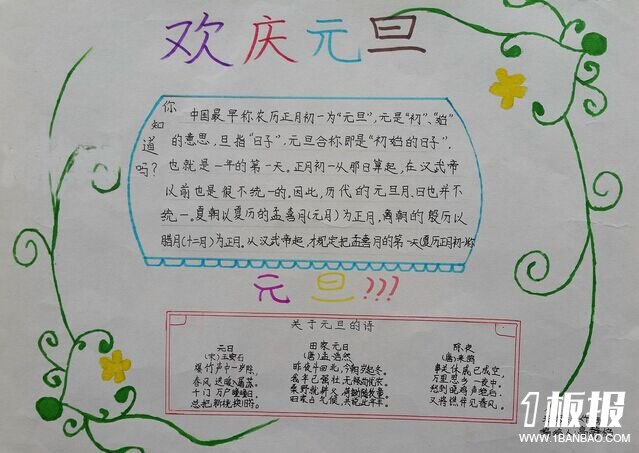 欢庆元旦
你知道吗?
中国最早称农历正月初一为“元旦”,元是“初”、“始”
的意思,旦指“日子”,元旦合称即是“初始的日子”,
也就是一年的第一天。正月初一从那日算起,在汉武帝
以前也是很不统一的。因此,历代的元旦月、日也并不
统一。夏朝以夏历的孟喜月(元月)为正月,商朝的殷历以
腊月(十二月)为正月。从汉武帝起,才规定把孟喜月的第一天(夏历正月初一)称
元旦???
关于元旦的诗
元日
(宋)王安石
爆竹声中一岁除,
春风送暖入屠苏。
千门万户曈曈日,
总把新桃换旧符。
田家元日
(唐)孟浩然
昨夜斗回北,今朝岁起东。
我年已强壮,无禄尚忧农。
桑野就耕父,荷锄随牧童。
田家占气候,共说此年丰。
除夜
(唐)来鹄
事关休戚已成空,
万里思乡一夜中。
愁到晓鸡声绝后,
又将憔悴见春风。
1板报
WWW.1BANBAO.COM